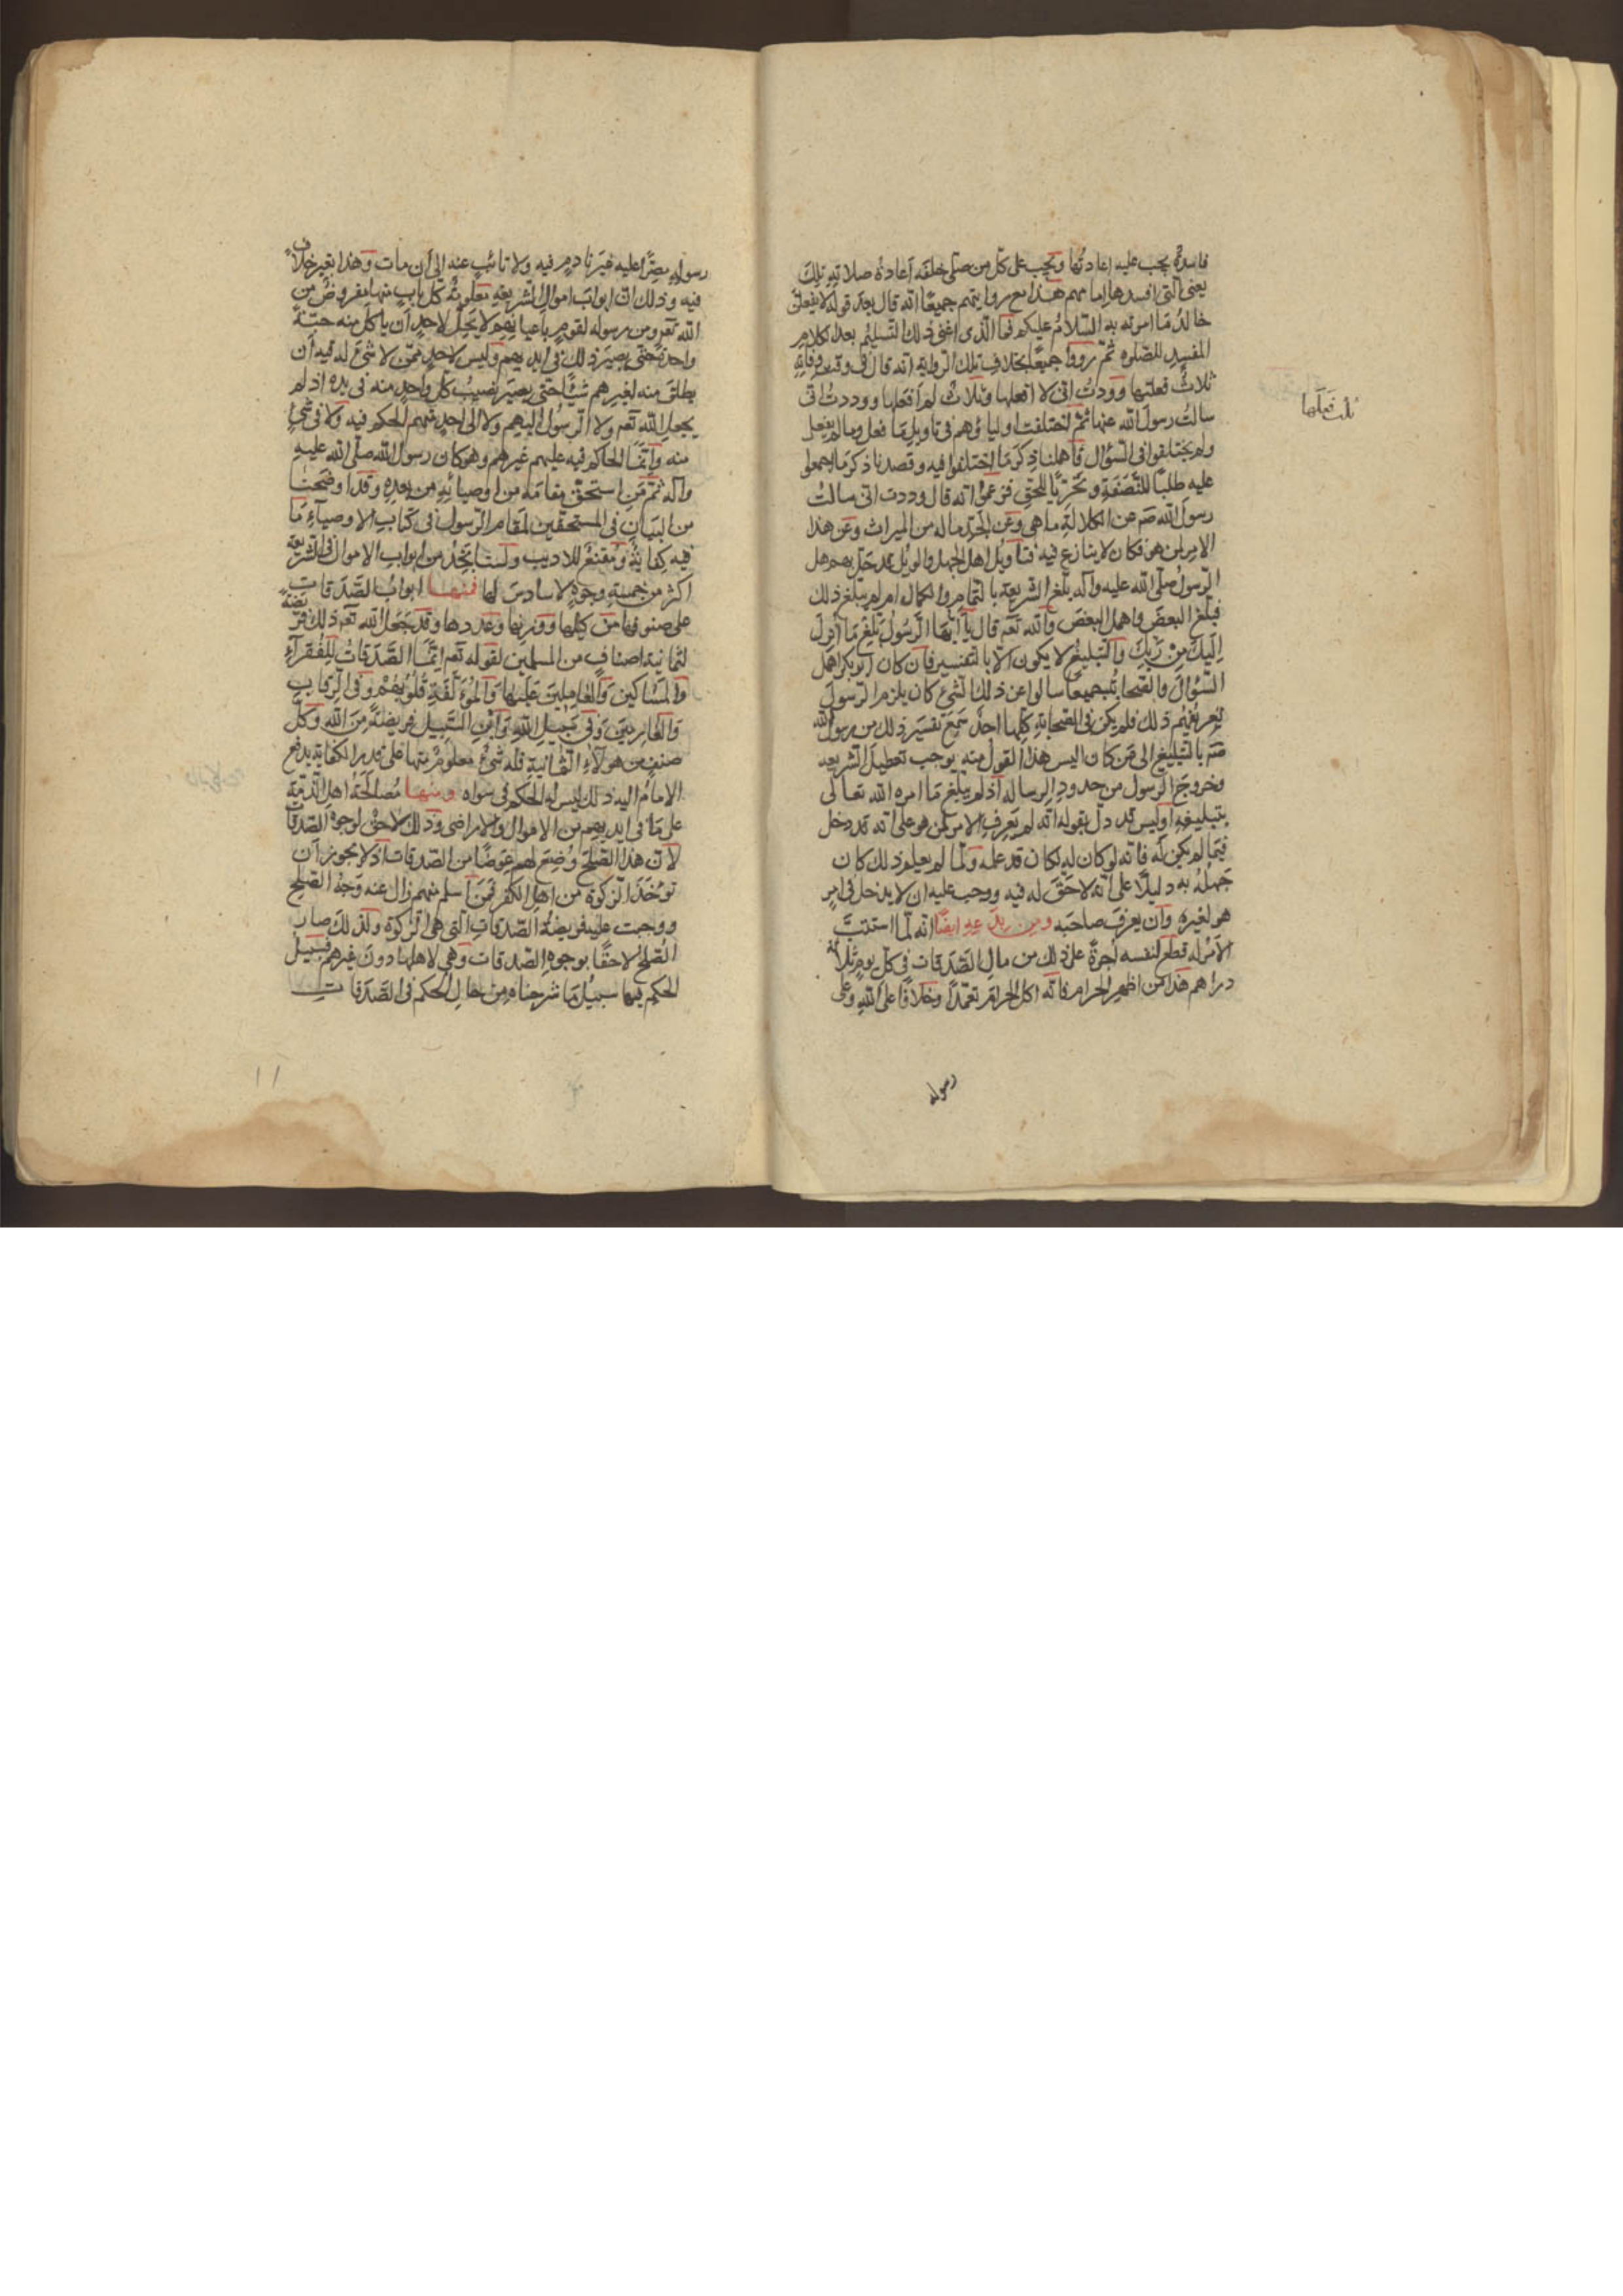 فاسدة يجب عليه اعادتها ويجب على كل من صلّى خلفه اعادة صلاته تلك
يعنى التى افسدها امامهم هذا مع روايتهم جميعًا انه قال بعد قوله لا يفعلن
خالد ما امرته به السّلام عليكم فما الذى اغنى ذلك التسليم بعد الكلام
المفسد للصلوة ثمّ رووا جميعًا بخلاف تلك الرواية انه قال فى وقت وفاته
ثلاث فعلتها وودت انى لا افعلها وثلاث لم افعلها ووددت انى
سالت رسول الله عنها ثمّ اختلفت اولياؤهم فى تاويل ما فعل وما لم يفعل
ولم يختلفوا فى السؤال فاهملنا ذكر ما اختلفوا فيه وقصدنا ذكر ما اجمعوا
عليه طلبًا للنّصفة وتحرّيًا للحق فزعموا انه قال وددت انى سالت
رسول الله صم عن الكلالة ما هى وعن الجدّ ما له من الميراث وعن هذا
الامر لمن هو فكان لا ينازع فيه فتاويل اهل الجهل والويل بهم هل
الرسول صلّى الله عليه وآله بلّغ الشريعة بالتمام والكمال ام لم يبلغ ذلك
فبلّغ البعض واهمل البعض والله تعم قال يا ايّها الرّسول بلّغ ما انزل
اليك من ربّك والتبليغ لا يكون الا بالتفسير فان كان ابوبكر اهمل
السّؤال والصّحابة جميعًا سالوا عن ذلك لشئ كان يلزم الرسول
تعريفهم ذلك فلم يكن فى الصّحابة كلّها احد سمع تفسير ذلك من رسول الله
صم بالتبليغ الى من كان اليس هذا القول منه يوجب تعطيل الشريعه
وخروج الرسول من حدود الرساله اذ لم يبلّغ ما امره الله تعالى
بتبليغه اوليس قد دلّ بقوله انّه لم يعرف الامر لمن هو على انه قد دخل
فيما لم يكن له فانه لو كان له لكان قد علمه ولما لم يعلم ذلك كان
جهله به دليلًا على انّه لا حقّ له فيه ووجب عليه ان لا يدخل فى امر
هو لغيره وان يعرف صاحبه ومن بدعه ايضًا انه لمّا استتبّ
الامر له قطع لنفسه اجرة على ذلك من مال الصّدقات فى كل يوم ثلاثة
دراهم هذا من اظهر الحرام فانّه اكل الحرام تعمّدًا وخلافًا على الله وعلى
رسوله
ثلث فعلها
رسوله مصرًّا عليه غير نادم فيه ولا تائب عنه الى ان مات وهذا بغير خلاف
فيه وذلك انّ ابواب اموال الشريعة معلومة كل باب منها مفروض من
الله تعم ومن رسوله لقوم باعيانهم لا يحلّ لاحد ان ياكل منه حبّة
واحدة حتى يصير ذلك فى ايديهم وليس لاحد ممّن لا شئ له فيه ان
يطلق منه لغيرهم شيئًا حتى يصير نصيب كل واحد منه فى يده اذ لم
يجعل الله تعم ولا الرسول اليهم ولا الى احد منهم الحكم فيه ولا فى شئ
منه وانّما الحاكم فيه عليهم غيرهم وهو كان رسول الله صلّى الله عليه
وآله ثمّ من استحقّ مقامه من اوصيائه من بعده وقد اوضحنا
من البيان فى المستحقين لمقام الرسول فى كتاب الاوصيآء ما
فيه كفاية ومقنع للاديب ولسنا نجد من ابواب الاموال فى الشريعة
اكثر من خمسة وجوه لا سادس لها فمنها ابواب الصّدقات
على صنوفها من كيلها ووزنها وعددها وقد جعل الله تعم ذلك فريضة
لثمانية اصناف من المسلمين لقوله تعم انّما الصّدقات للفقرآء
والمساكين والعاملين عليها والمؤلّفة قلوبهم وفى الرقاب
والغارمين وفى سبيل الله وابن السّبيل فريضة من الله وكلّ
صنف من هولآء الثمانية فله شئ معلوم منها على قدر الكفاية يدفع
الامام اليه ذلك ليس له الحكم فى سواه ومنها مصالحة اهل الذمّة
على ما فى ايديهم من الاموال والاراضى وذلك لاحق لوجوه الصّدقات
لان هذا الصلح وضع لهم عوضًا من الصدقات اذ لا يجوز ان
تؤخذ الزكوة من اهل الكفر فمن اسلم منهم زال عنه وجه الصّلح
ووجبت عليه فريضة الصّدقات التى هى الزكوة ولذلك صار
الصّلح لاحقًا بوجوه الصّدقات وهى لاهلها دون غيرهم فسبيل
الحكم فيها سبيل ما شرحناه من حال الحكم فى الصّدقات
١١